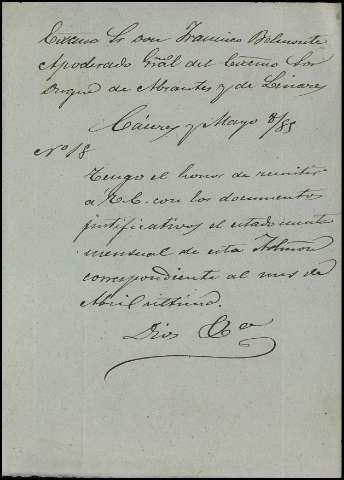 Excmo Sr don Francisco Belmonte
Apoderado Gral del Excmo Sor
Duque de Abrantes y de Linares
Cáceres y Mayo 8/85
No 18
Tengo el honor de remitir
á V.E. con los documentos
justificativos el estado
mensual de esta Admon
correspondiente al mes de
Abril ultimo.
Dios &a